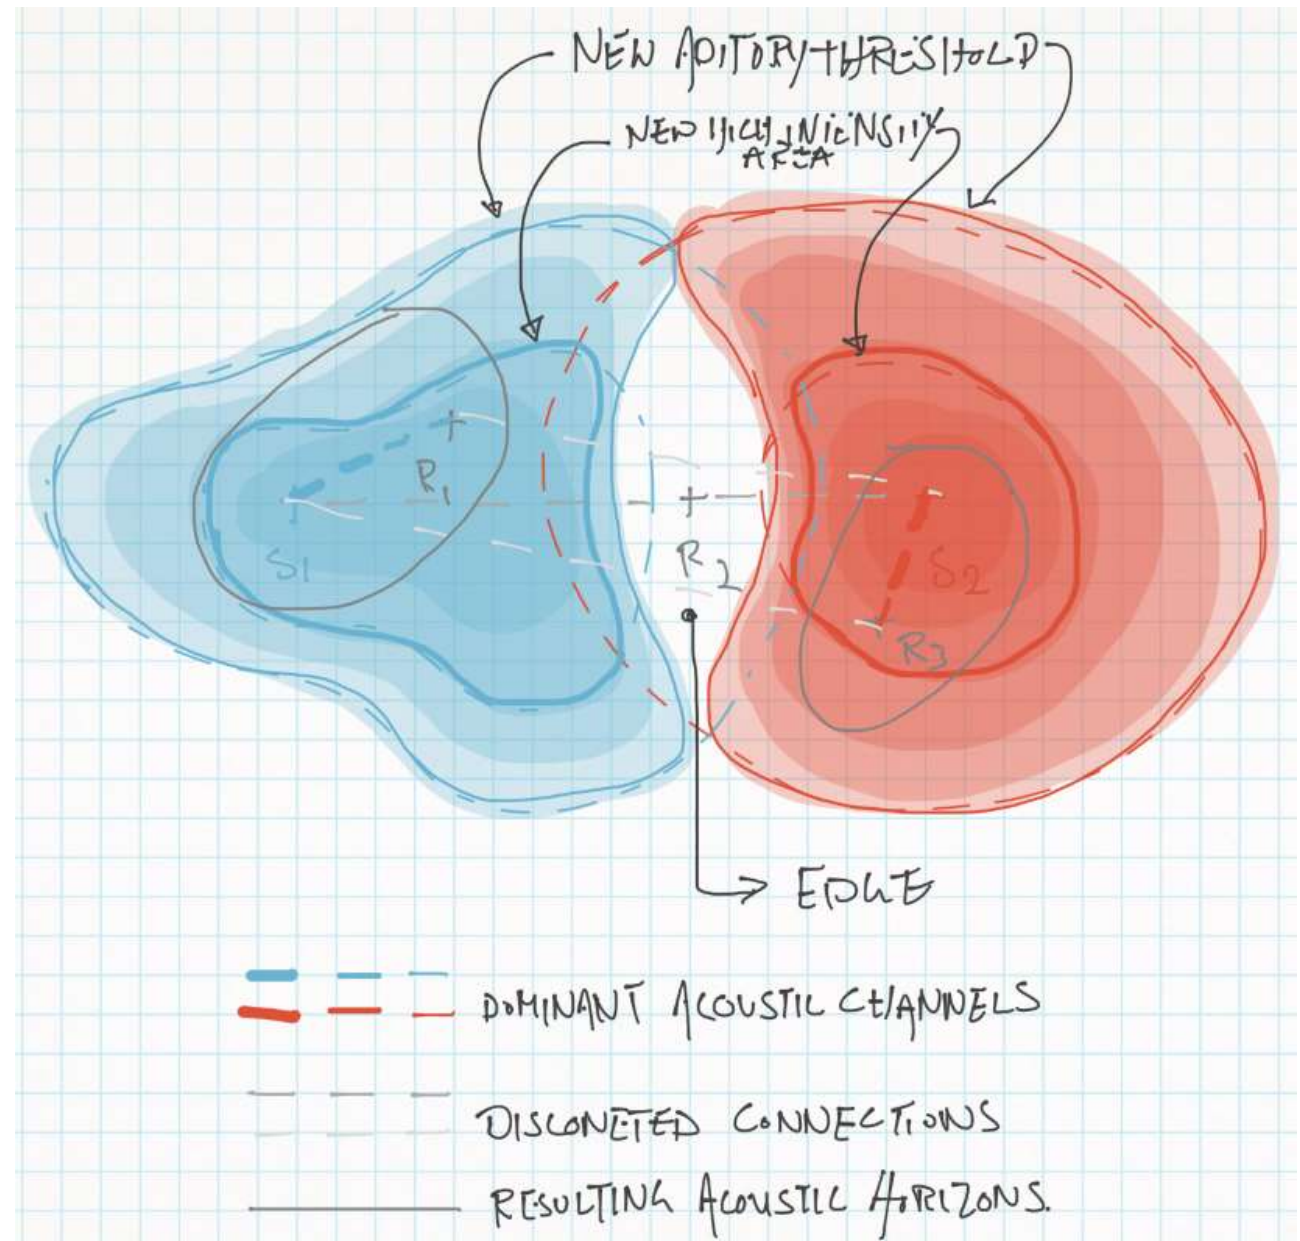 NEW ADITORY THRESHOLD
NEW HIGH INTENSITY
AREA
R1
S1
R2
S2
R3
EDGE
DOMINANT ACOUSTIC CHANNELS
DISCONETED CONNECTIONS
RESULTING ACOUSTIC HORIZONS.